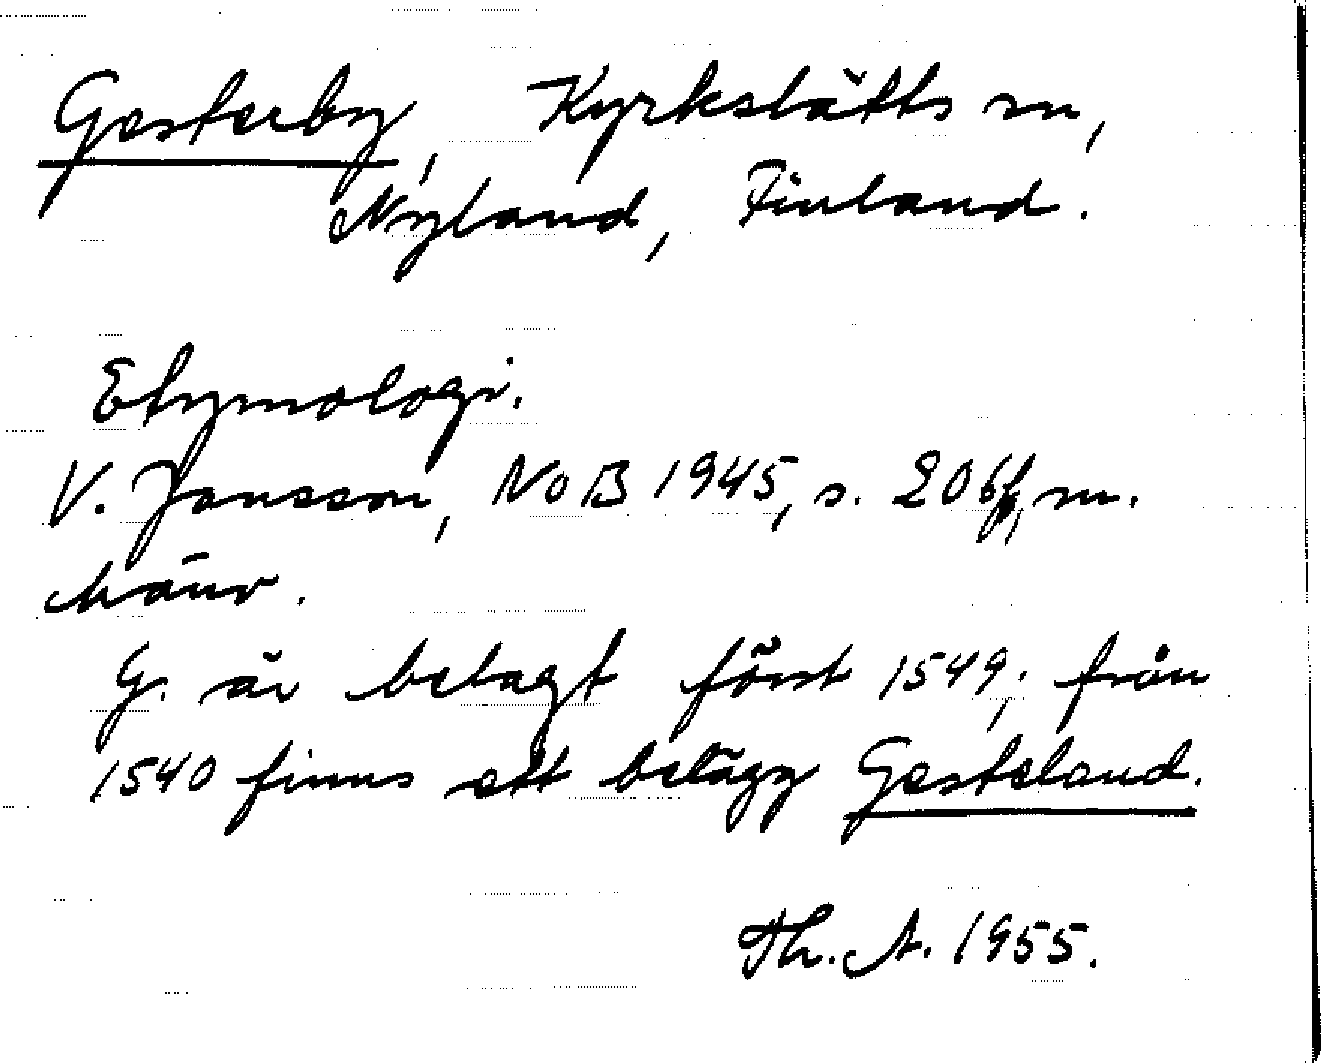 Gesterby, Kyrkslätts sn,
Nyland, Finland.
Etymologi.
V. Jansson, NoB 1945, s. 206ff, m.
hänv.
G. är belagt först 1549; från
1540 finns ett belägg Gesteland.
Th. A. 1955.